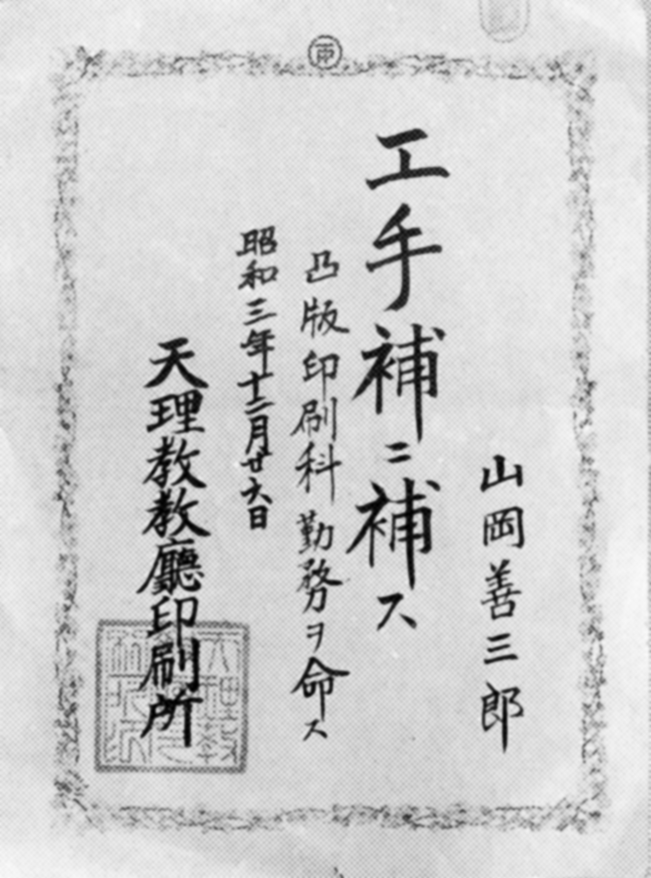 山岡善三郎
工手補ニ補ス
凸版印刷科勤務ヲ命ス
昭和三年十二月廿六日
天理教教廳印刷所